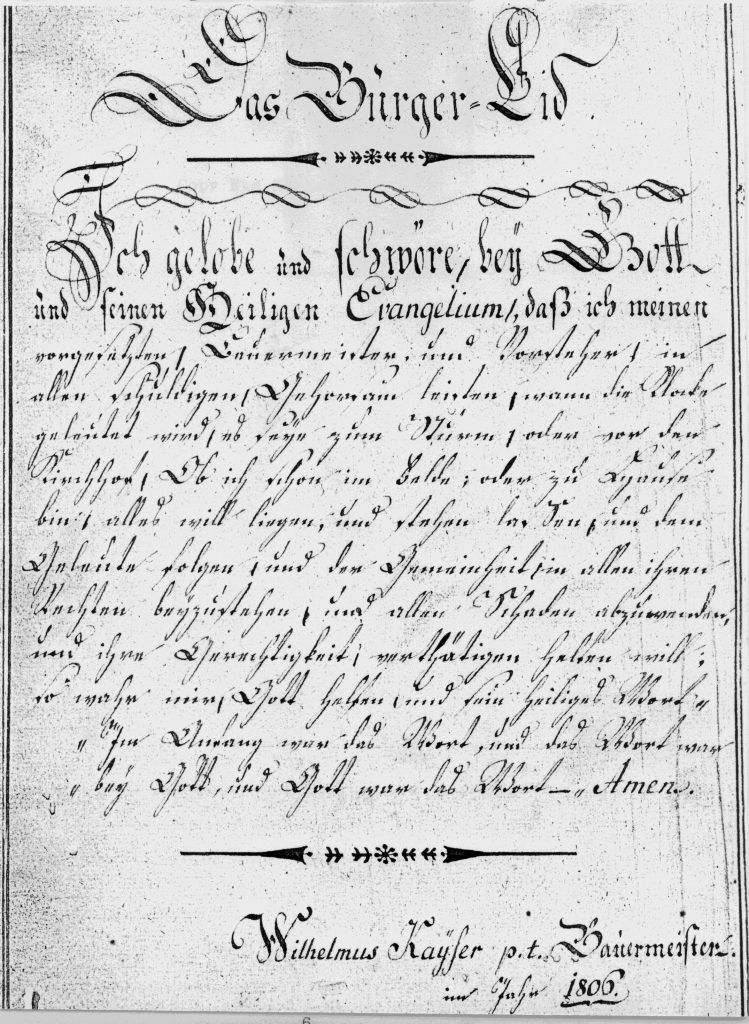 Das Bürger-Eid.
Ich gelobe und schwöre, bey Gott
und seinen Heiligen Evangelium, daß ich meinen
vorgesetzten, Bauermeister, und Vorsteher, in
allen schuldigen, Gehorsam leisten, wann die Klocke
geleutet wird, es seye zum Sturm, oder vor den
Kirchhof, Ob ich schon im Felde, oder zu Hause
bin, alles will liegen, und stehen lassen, und dem
Geleute folgen, und der Gemeinheit, in allen ihren
Rechten beyzustehen, und allen Schaden abzuwenden,
und ihre Gerechtigkeit, verthätigen helfen will;
so wahr mir, Gott helfen, und sein heiliges Wort „
„ Im Anfang war das Wort, und das Wort war
„ bey Gott, und Gott war das Wort — „ Amen.
Wilhelmus Kayser p. t. Bauermeister.
im Jahr 1806.
6